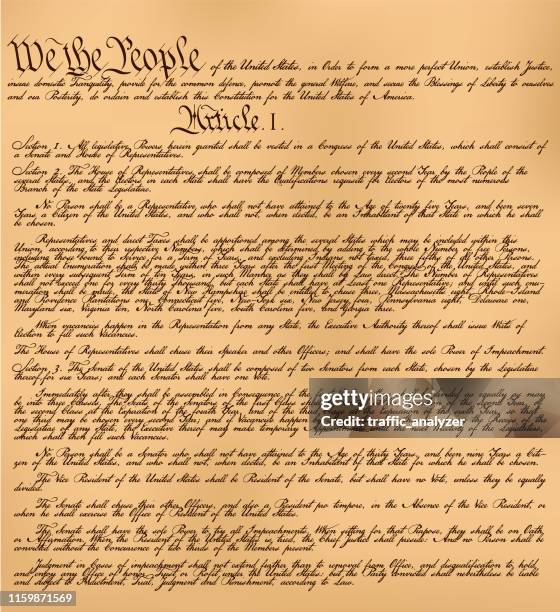 We the People of the United States, in Order to form a more perfect Union, establish Justice,
insure domestic Tranquility, provide for the common defence, promote the general Welfare, and secure the Blessings of Liberty to ourselves
and our Posterity, do ordain and establish this Constitution for the United States of America.
Article. I.
Section. 1. All legislative Powers herein granted shall be vested in a Congress of the United States, which shall consist of
a Senate and House of Representatives.
Section. 2. The House of Representatives shall be composed of Members chosen every second Year by the People of the
several States, and the Electors in each State shall have the Qualifications requisite for Electors of the most numerous
Branch of the State Legislature.
No Person shall be a Representative who shall not have attained to the Age of twenty five Years, and been seven
Years a Citizen of the United States, and who shall not, when elected, be an Inhabitant of that State in which he shall
be chosen.
Representatives and direct Taxes shall be apportioned among the several States which may be included within this
Union, according to their respective Numbers, which shall be determined by adding to the whole Number of free Persons,
including those bound to Service for a Term of Years, and excluding Indians not taxed, three fifths of all other Persons.
The actual Enumeration shall be made within three Years after the first Meeting of the Congress of the United States, and
within every subsequent Term of ten Years, in such Manner as they shall by Law direct. The Number of Representatives
shall not exceed one for every thirty Thousand, but each State shall have at Least one Representative; and until such enu-
meration shall be made, the State of New Hampshire shall be entitled to chuse three, Massachusetts eight, Rhode-Island
and Providence Plantations one, Connecticut five, New-York six, New Jersey four, Pennsylvania eight, Delaware one,
Maryland six, Virginia ten, North Carolina five, South Carolina five, and Georgia three.
When vacancies happen in the Representation from any State, the Executive Authority thereof shall issue Writs of
Election to fill such Vacancies.
The House of Representatives shall chuse their Speaker and other Officers; and shall have the sole Power of Impeachment.
Section. 3. The Senate of the United States shall be composed of two Senators from each State, chosen by the Legislature
thereof for six Years; and each Senator shall have one Vote.
Immediately after they shall be assembled in Consequence of the divided as equally as may
be into three Classes. The Seats of the Senators of the first Class shall be second Year, of
the second Class at the Expiration of the fourth Year, and of the third Class at the Expiration of the sixth Year, so that
one third may be chosen every second Year; and if Vacancies happen Recess of the
Legislature of any State, the Executive thereof may make temporary of the Legislature,
which shall then fill such Vacancies.
No Person shall be a Senator who shall not have attained to the Age of thirty Years, and been nine Years a Citi-
zen of the United States, and who shall not, when elected, be an Inhabitant of that State for which he shall be chosen.
The Vice President of the United States shall be President of the Senate, but shall have no Vote, unless they be equally
divided.
The Senate shall chuse their other Officers, and also a President pro tempore, in the Absence of the Vice President, or
when he shall exercise the Office of President of the United States.
The Senate shall have the sole Power to try all Impeachments. When sitting for that Purpose, they shall be on Oath
or Affirmation. When the President of the United States is tried, the Chief Justice shall preside: And no Person shall be
convicted without the Concurrence of two thirds of the Members present.
Judgment in Cases of impeachment shall not extend further than to removal from Office, and disqualification to hold
and enjoy any Office of honor, Trust or Profit under the United States: but the Party convicted shall nevertheless be liable
and subject to Indictment, Trial, Judgment and Punishment, according to Law.
iStock
Credit: traffic_analyzer
1159871569